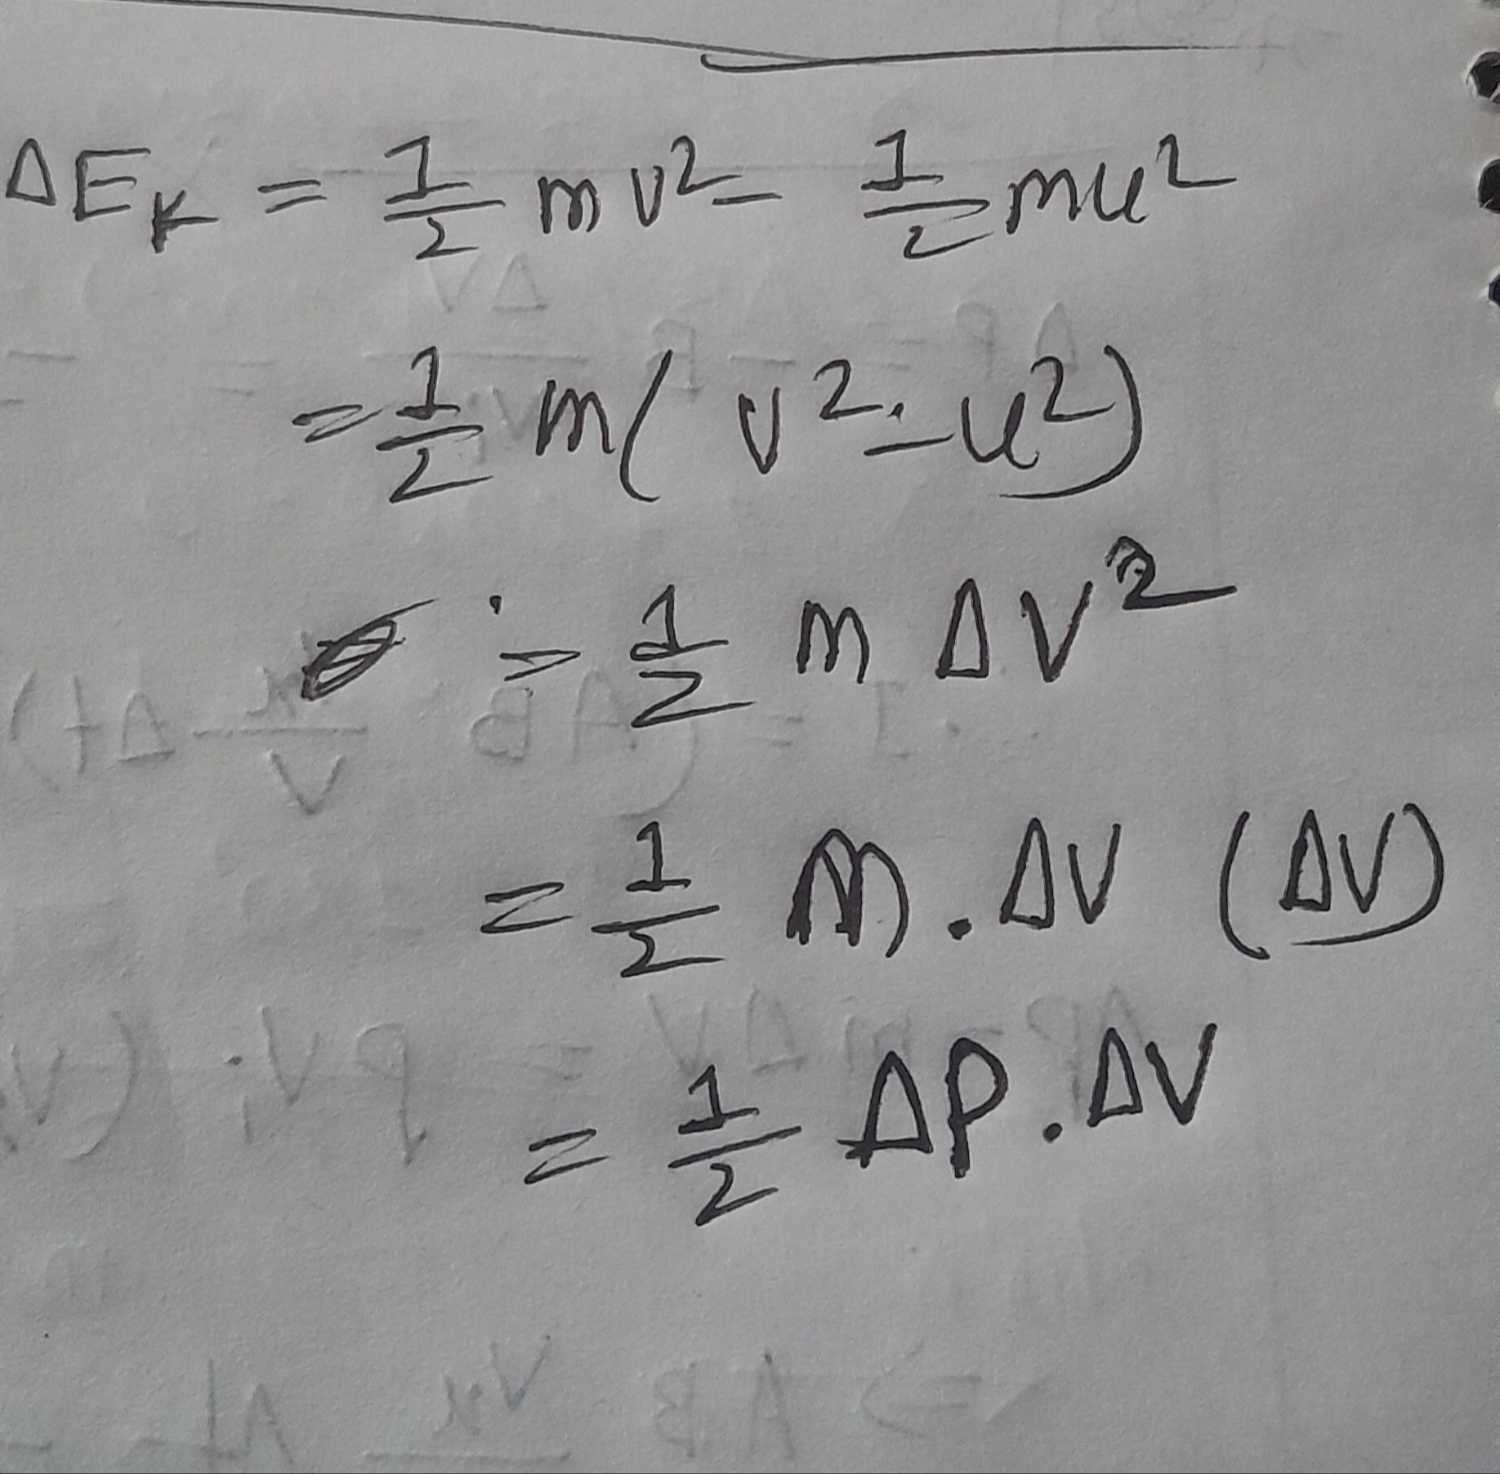 ΔEₖ = 1/2 mv² - 1/2 mu²
= 1/2 m( v² - u²)
∴ = 1/2 m Δv²
= 1/2 m . Δv (Δv)
= 1/2 ΔP . Δv